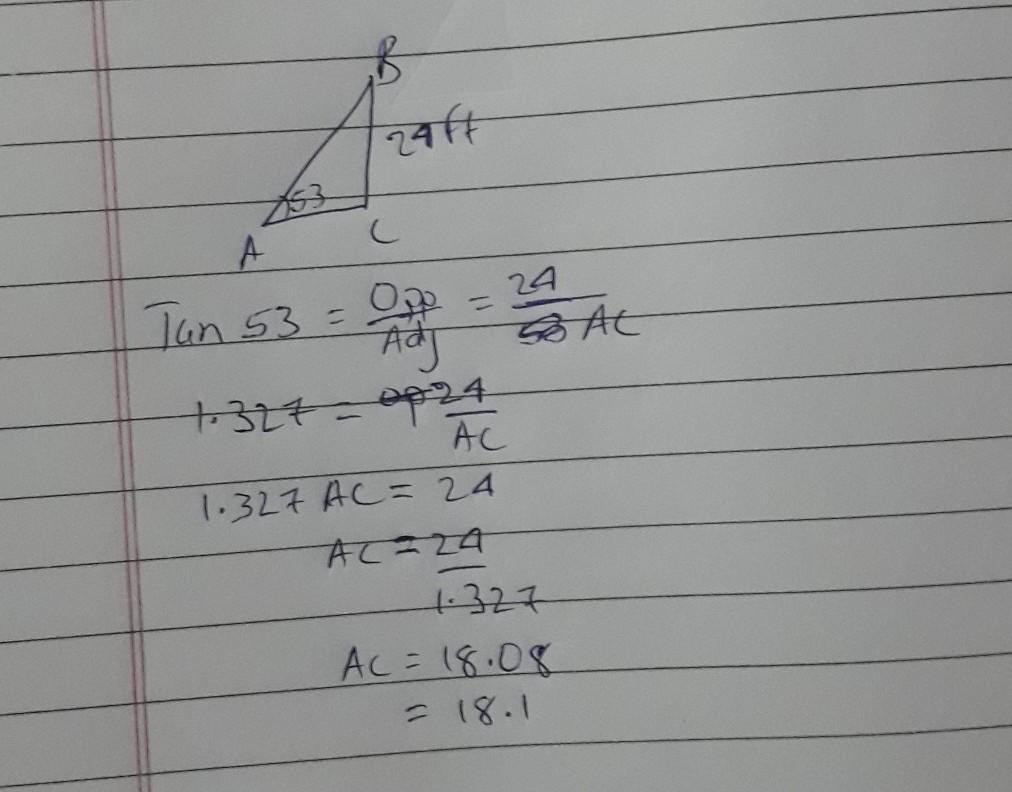 B
24ft
53
A
C
Tan 53 = Opp/Adj = 24/AC
1.327 = 24/AC
1.327 AC = 24
AC = 24/1.327
AC = 18.08
= 18.1